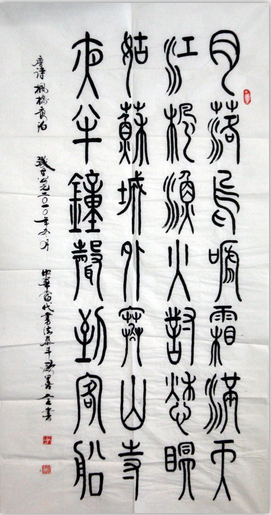 月落烏啼霜滿天
江楓漁火對愁眠
姑蘇城外寒山寺
夜半鐘聲到客船
唐詩楓橋夜泊
中華當代書法